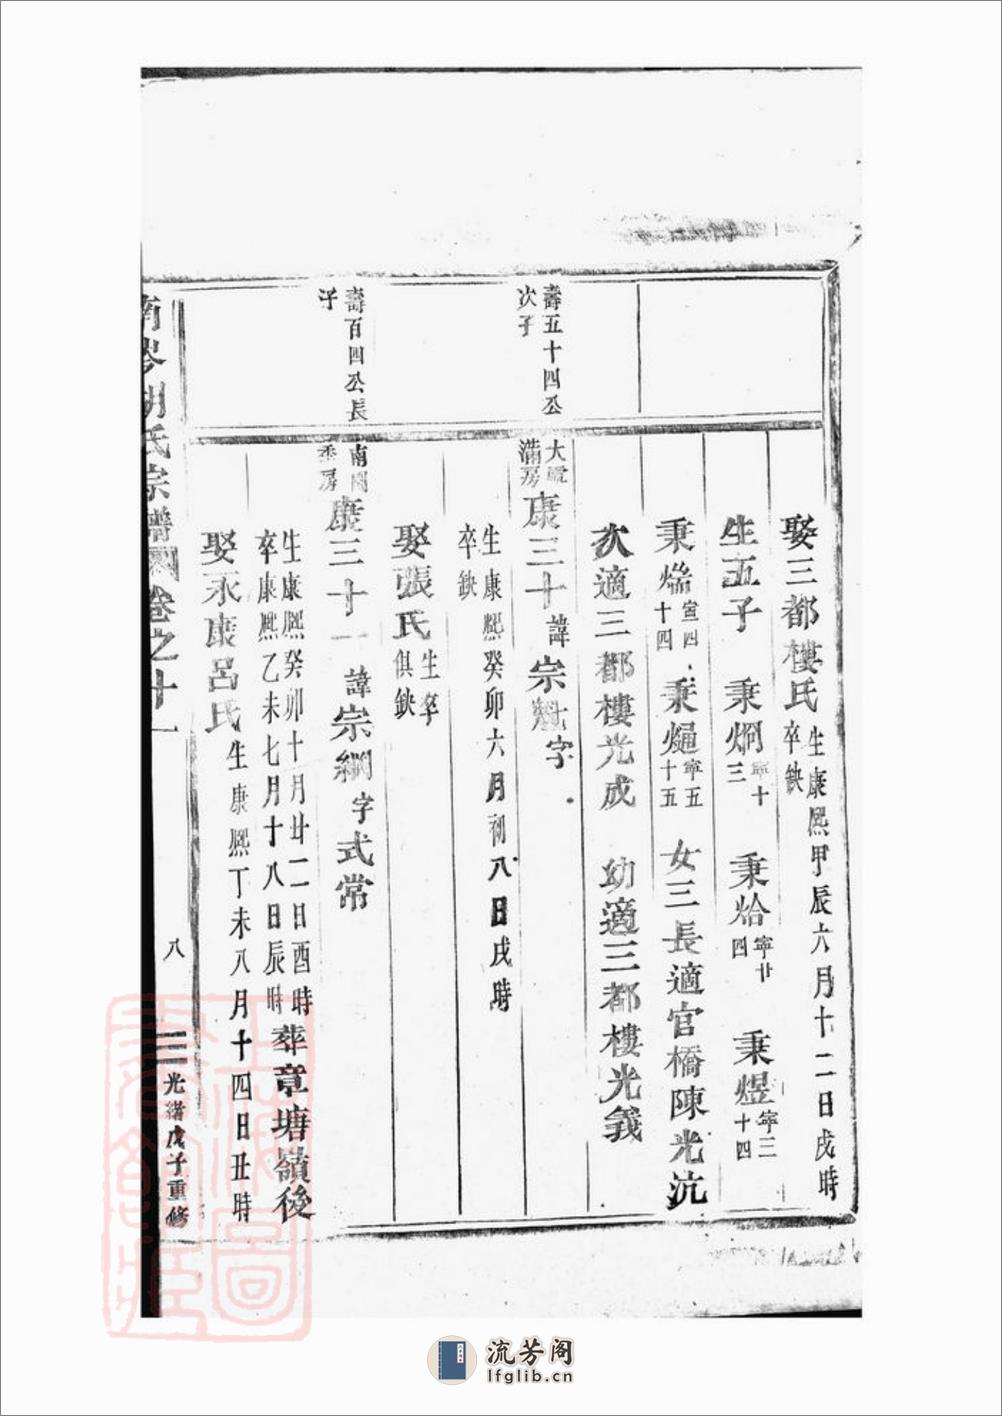 娶三都樓氏生康熙甲辰六月十二日戌時
卒缺
生五子 秉炯寧十三 秉烚寧廿四 秉煜寧三十四
秉煓宣四十四 秉𤒹寧五十五 女三長適官橋陳光沆
次適三都樓光成 幼適三都樓光義
壽五十四公
次子
大
滿房
康三十諱宗 字
生康熙癸卯六月初八日戌時
卒缺
娶張氏生卒俱缺
壽百四公長
子
南
房
康三十一諱宗綱字式常
生康熙癸卯十月廿一日酉時
卒康熙乙未七月十八日辰時
葬章塘嶺後
娶永康呂氏生康熙丁未八月十四日丑時
南岑胡氏宗譜 卷之十一
八
光緒戊子重修
流芳阁
lfglib.cn